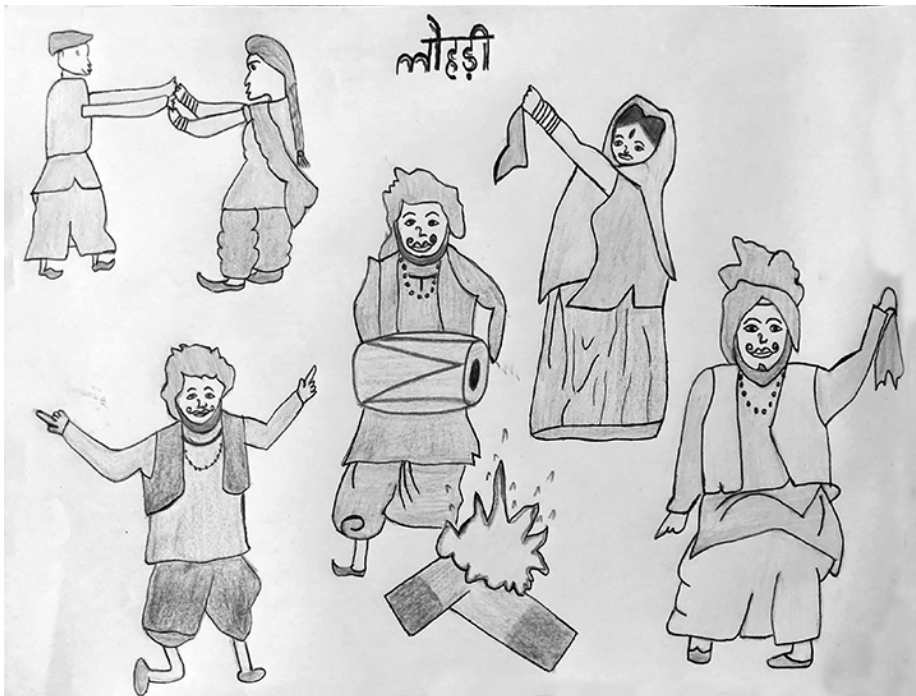 लोहड़ी